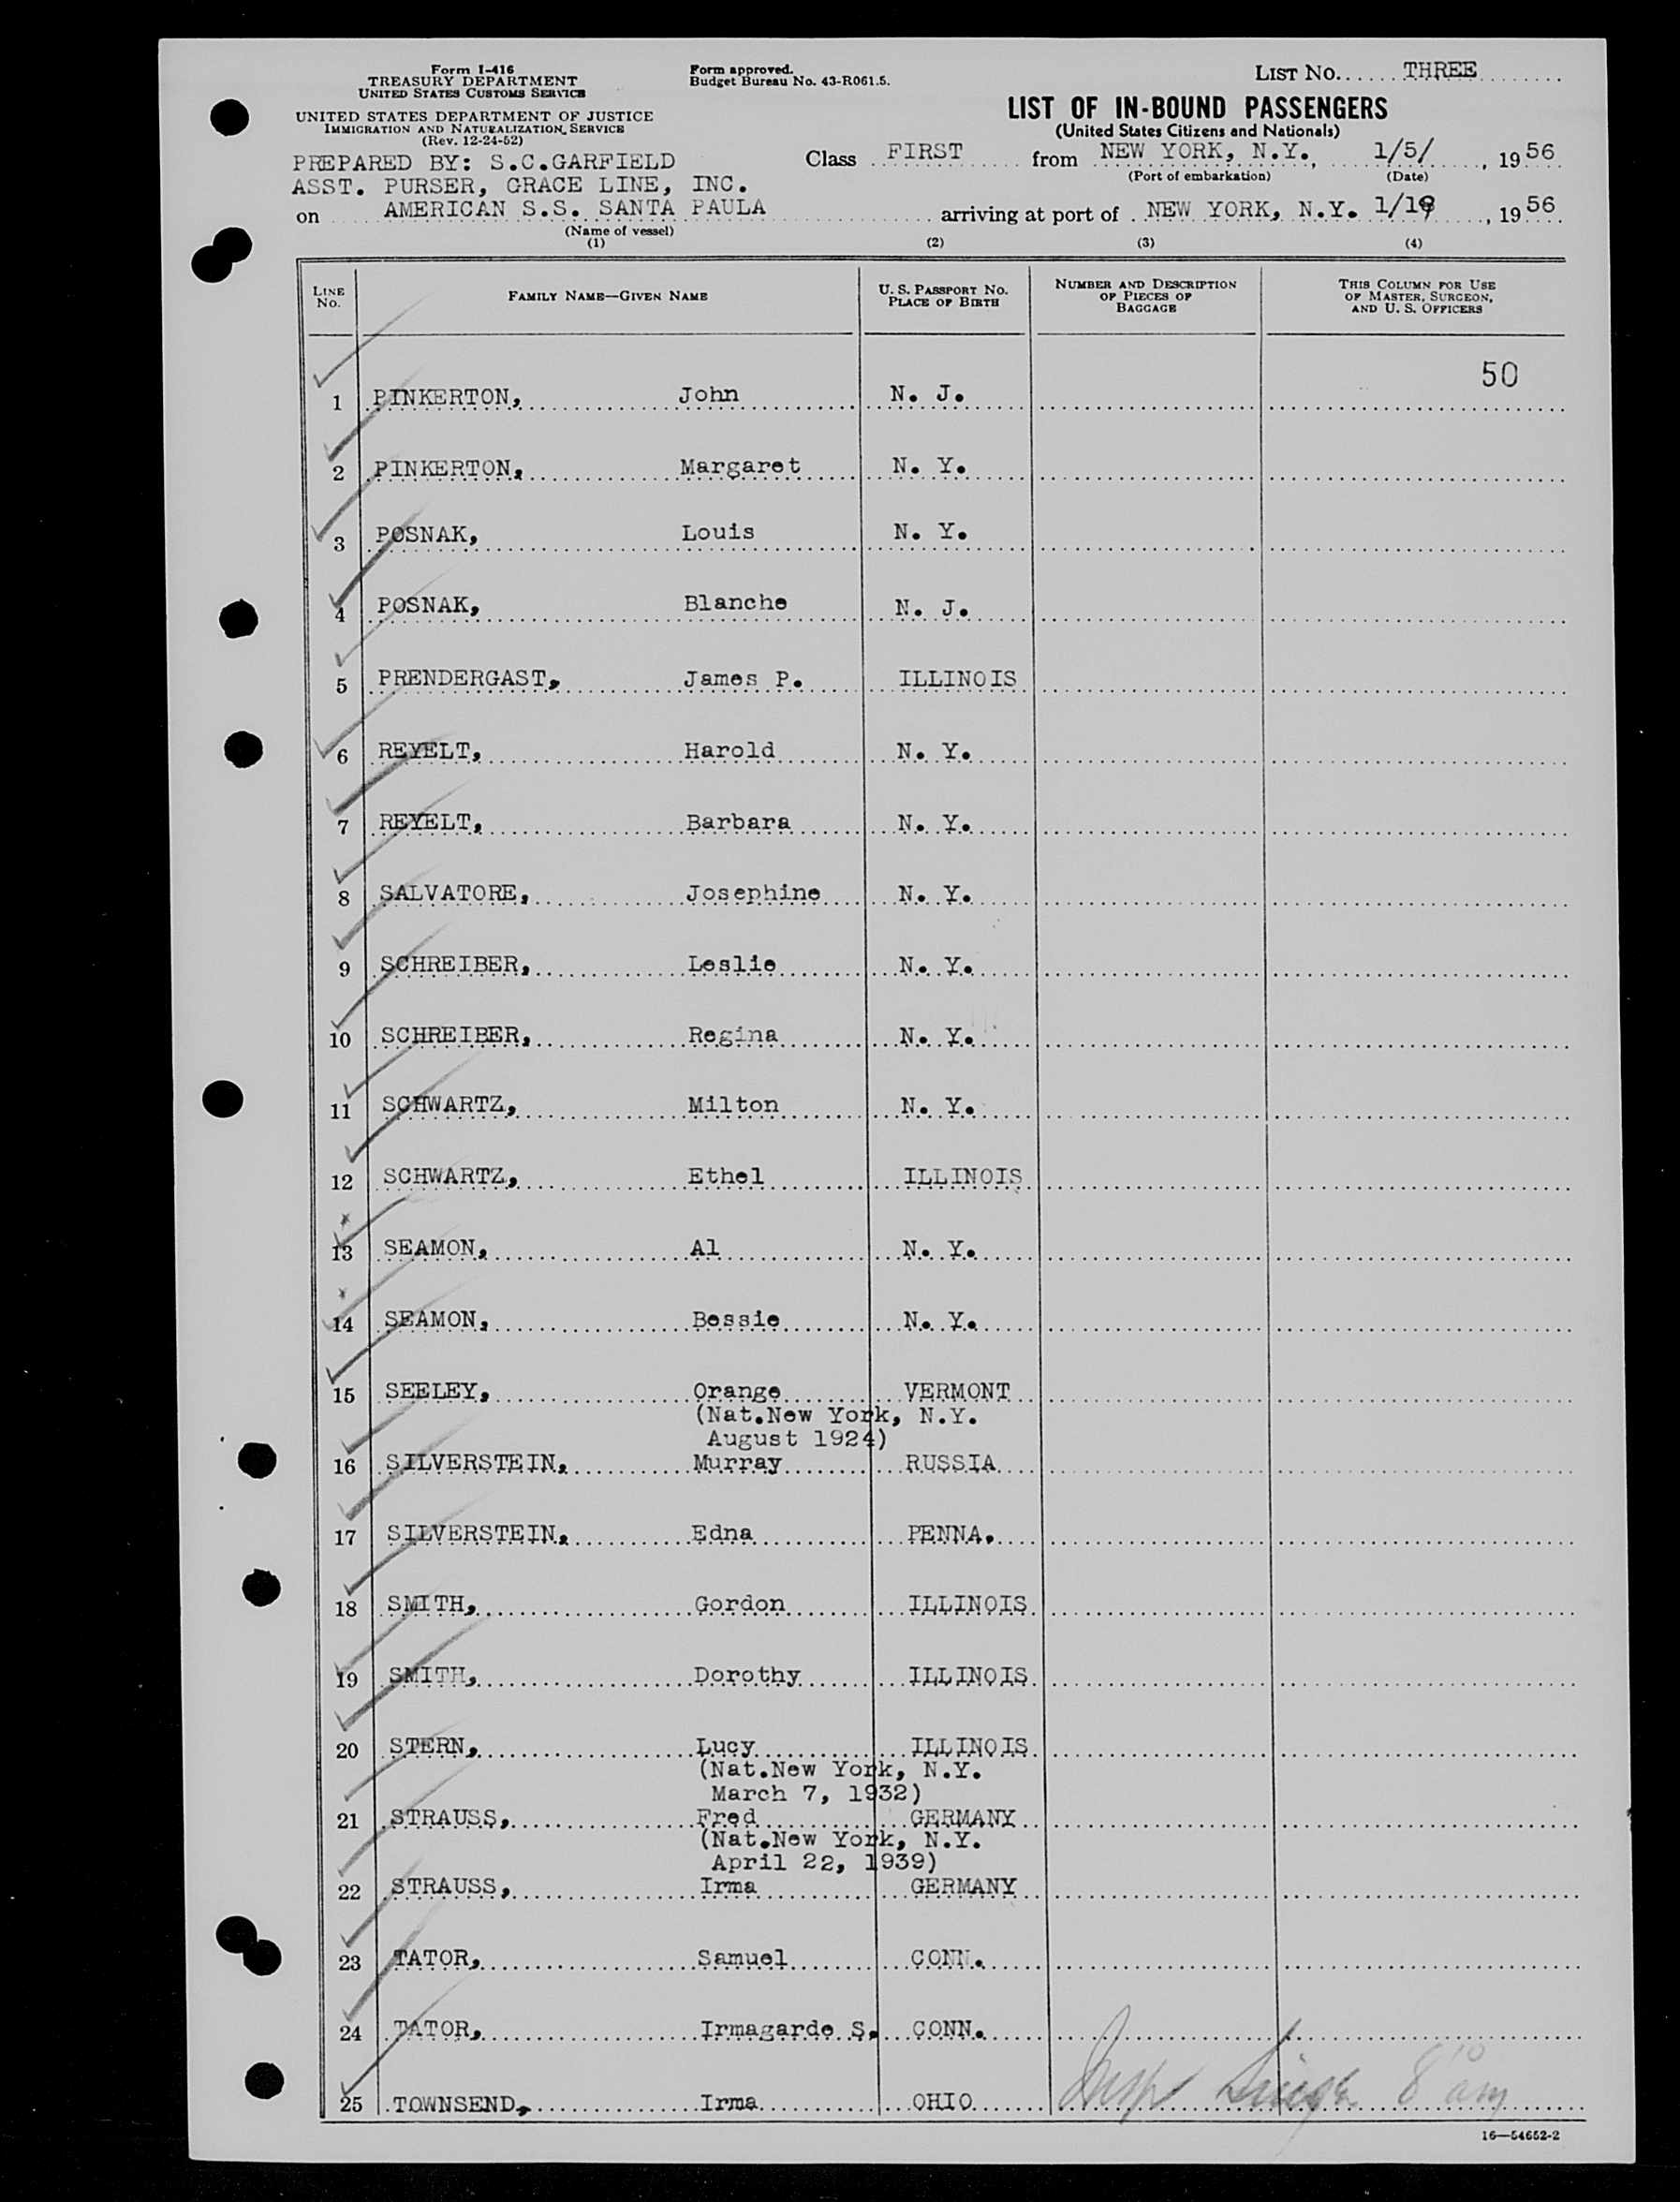 Form I-416
TREASURY DEPARTMENT
UNITED STATES CUSTOMS SERVICE
UNITED STATES DEPARTMENT OF JUSTICE
IMMIGRATION AND NATURALIZATION SERVICE
(Rev. 12-24-52)
Form approved.
Budget Bureau No. 43-R061.5.
LIST NO. THREE
LIST OF IN-BOUND PASSENGERS
(United States Citizens and Nationals)
PREPARED BY: S.C.GARFIELD
ASST. PURSER, GRACE LINE, INC.
Class FIRST from NEW YORK, N.Y., 1/5/, 1956
(Port of embarkation) (Date)
on AMERICAN S.S. SANTA PAULA arriving at port of NEW YORK, N.Y. 1/18, 1956
(Name of vessel)
(1) (2) (3) (4)
LINE NO. FAMILY NAME—GIVEN NAME U. S. PASSPORT NO. PLACE OF BIRTH NUMBER AND DESCRIPTION OF PIECES OF BAGGAGE THIS COLUMN FOR USE OF MASTER, SURGEON, AND U. S. OFFICERS
50
1 PINKERTON, John N. J.
2 PINKERTON, Margaret N. Y.
3 POSNAK, Louis N. Y.
4 POSNAK, Blanche N. J.
5 PRENDERGAST, James P. ILLINOIS
6 REYELT, Harold N. Y.
7 REYELT, Barbara N. Y.
8 SALVATORE, Josephine N. Y.
9 SCHREIBER, Leslie N. Y.
10 SCHREIBER, Regina N. Y.
11 SCHWARTZ, Milton N. Y.
12 SCHWARTZ, Ethel ILLINOIS
13 SEAMON, Al N. Y.
14 SEAMON, Bessie N. Y.
15 SEELEY, Orange VERMONT
(Nat.New York, N.Y.
August 1924)
16 SILVERSTEIN, Murray RUSSIA
17 SILVERSTEIN, Edna PENNA.
18 SMITH, Gordon ILLINOIS
19 SMITH, Dorothy ILLINOIS
20 STERN, Lucy ILLINOIS
(Nat.New York, N.Y.
March 7, 1932)
21 STRAUSS, Fred GERMANY
(Nat.New York, N.Y.
April 22, 1939)
22 STRAUSS, Irma GERMANY
23 TATOR, Samuel CONN.
24 TATOR, Irmagarde S. CONN.
25 TOWNSEND, Irma OHIO
8 10 am
16—54652-2